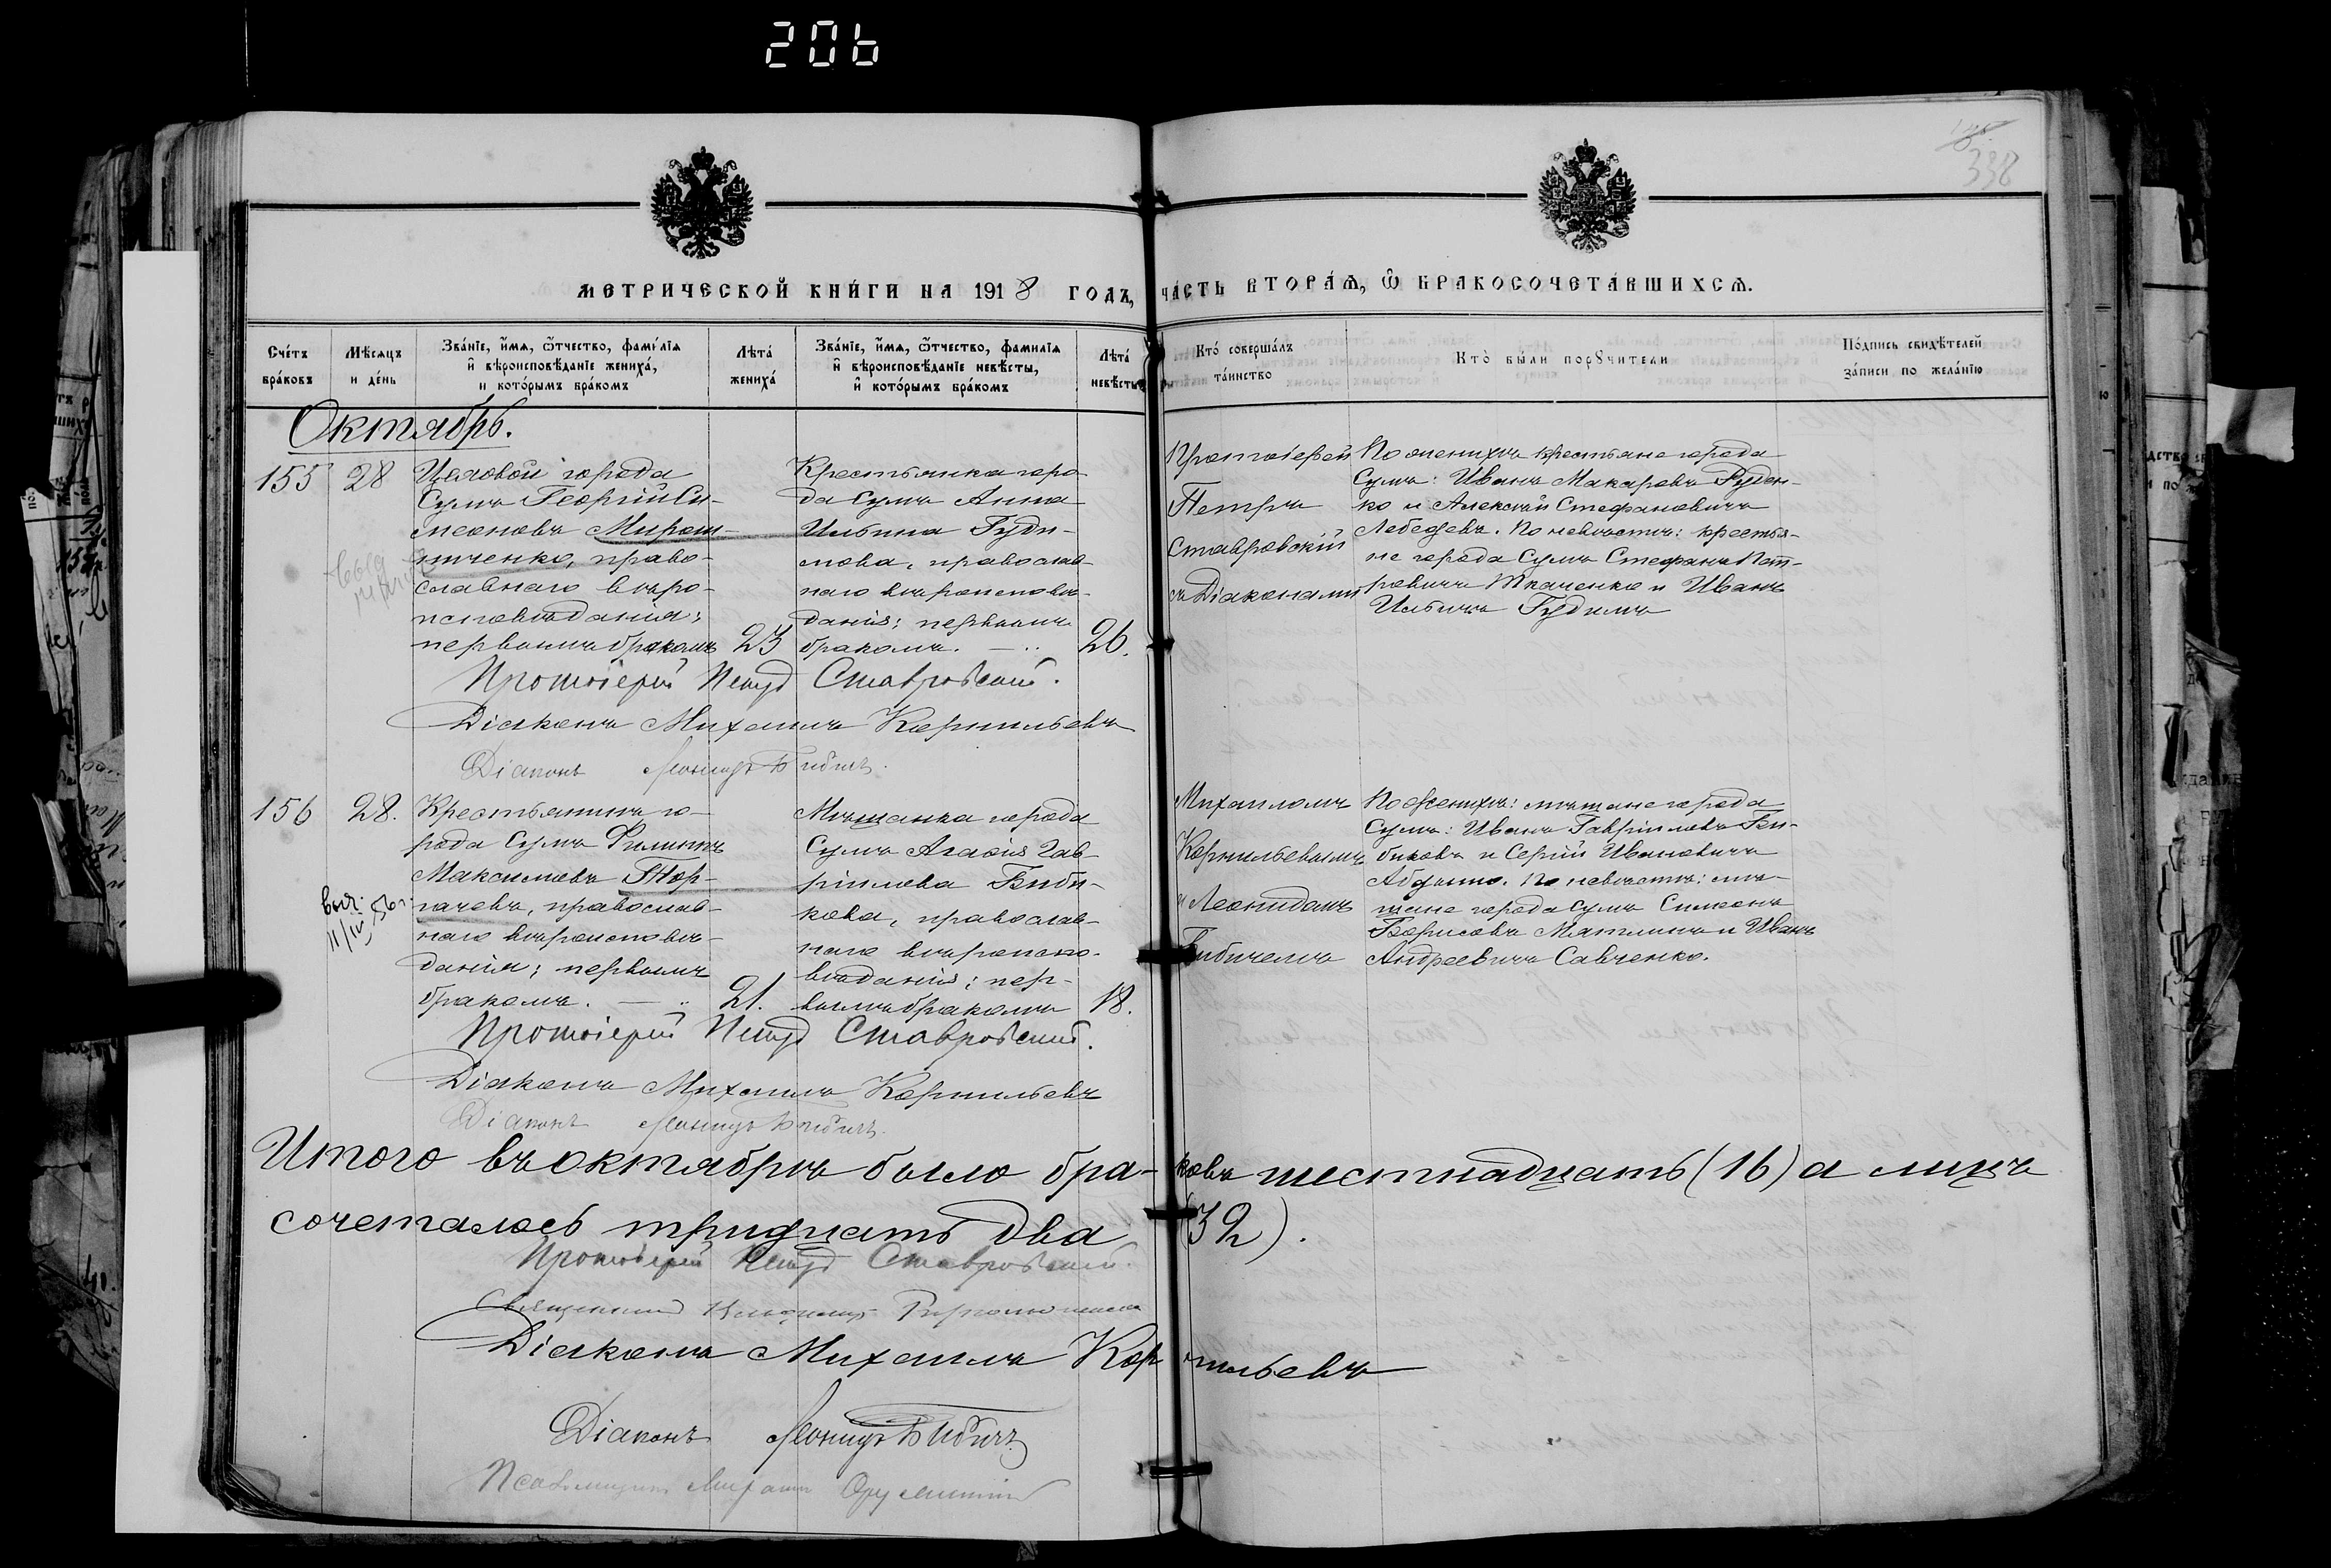 206
338
МЕТРИЧЕСКОЙ КНИ́ГИ НА 1918 ГОДЪ, ЧА́СТЬ ВТОРА́Ѧ, Ѽ БРАКОСОЧЕТА́ВШИХСѦ.
Сче́тъ бра́ковъ
Мѣ́сѧцъ и де́нь
Зва́нїе, и҆́мѧ, ѻ҆́тчество, фамі́лїѧ и҆ вѣроисповѣ́данїе жениха́, и кото́рымъ бра́комъ
Лѣта́ жениха́
Зва́нїе, и҆́мѧ, ѻ҆́тчество, фамилїѧ и҆ вѣроисповѣ́данїе невѣ́сты, и҆ кото́рымъ бра́комъ
Лѣта́ невѣ́сты
Кто́ соверша́лъ та́инство
Кто̀ бы́ли порꙋчители
По́дпись свидѣ́телей за́писи по жела́нїю
Октябрь.
155
28
Цеховой города
Сумъ Георгій Си-
меоновъ Мирош-
ниченко, право-
славнаго вѣро-
исповѣданія;
первымъ бракомъ
23
Крестьянка горо-
да Сумъ Анна
Ильина Гуди-
мова, православ-
наго вѣроисповѣ-
данія; первымъ
бракомъ. —
26.
Протоіерей
Петръ
Ставровскій
съ Діаконами
По женихѣ крестьяне города
Сумъ: Иванъ Макаровъ Руден-
ко и Алексѣй Стефановичъ
Лебедевъ. По невѣстѣ: крестья-
не города Сумъ Стефанъ Пет-
ровичъ Ткаченко и Иванъ
Ильичъ Гудимъ
Протоіерей Петръ Ставровскій.
Діаконъ Михаилъ Корнильевъ
Діаконъ Леонидъ Бибичъ.
156
28.
Крестьянинъ го-
рода Сумъ Филиппъ
Максимовъ Тор-
гачевъ, православ-
наго вѣроисповѣ-
данія; первымъ
бракомъ. —
21.
выд.
11/IV 56 г.
Мѣщанка города
Сумъ Агаѳія Гав-
ріилова Биби-
кова, православ-
наго вѣроиспо-
вѣданія; пер-
вымъ бракомъ
18.
Михаиломъ
Корнильевымъ
и Леонидомъ
Бибичемъ
По женихѣ: мѣщане города
Сумъ: Иванъ Гавріиловъ Би-
биковъ и Сергій Ивановичъ
По невѣстѣ: мѣ-
щане города Сумъ Симеонъ
Борисовъ Мятлинъ и Иванъ
Андреевичъ Савченко.
Протоіерей Петръ Ставровскій.
Діаконъ Михаилъ Корнильевъ
Діаконъ Леонидъ Бибичъ.
Итого въ октябрѣ было бра-ковъ шестнадцать (16) а лицъ
сочеталось тридцать два (32).
Протоіерей Петръ Ставровскій.
Священникъ
Діаконъ Михаилъ Корнильевъ
Діаконъ Леонидъ Бибичъ
Псаломщикъ Михаилъ